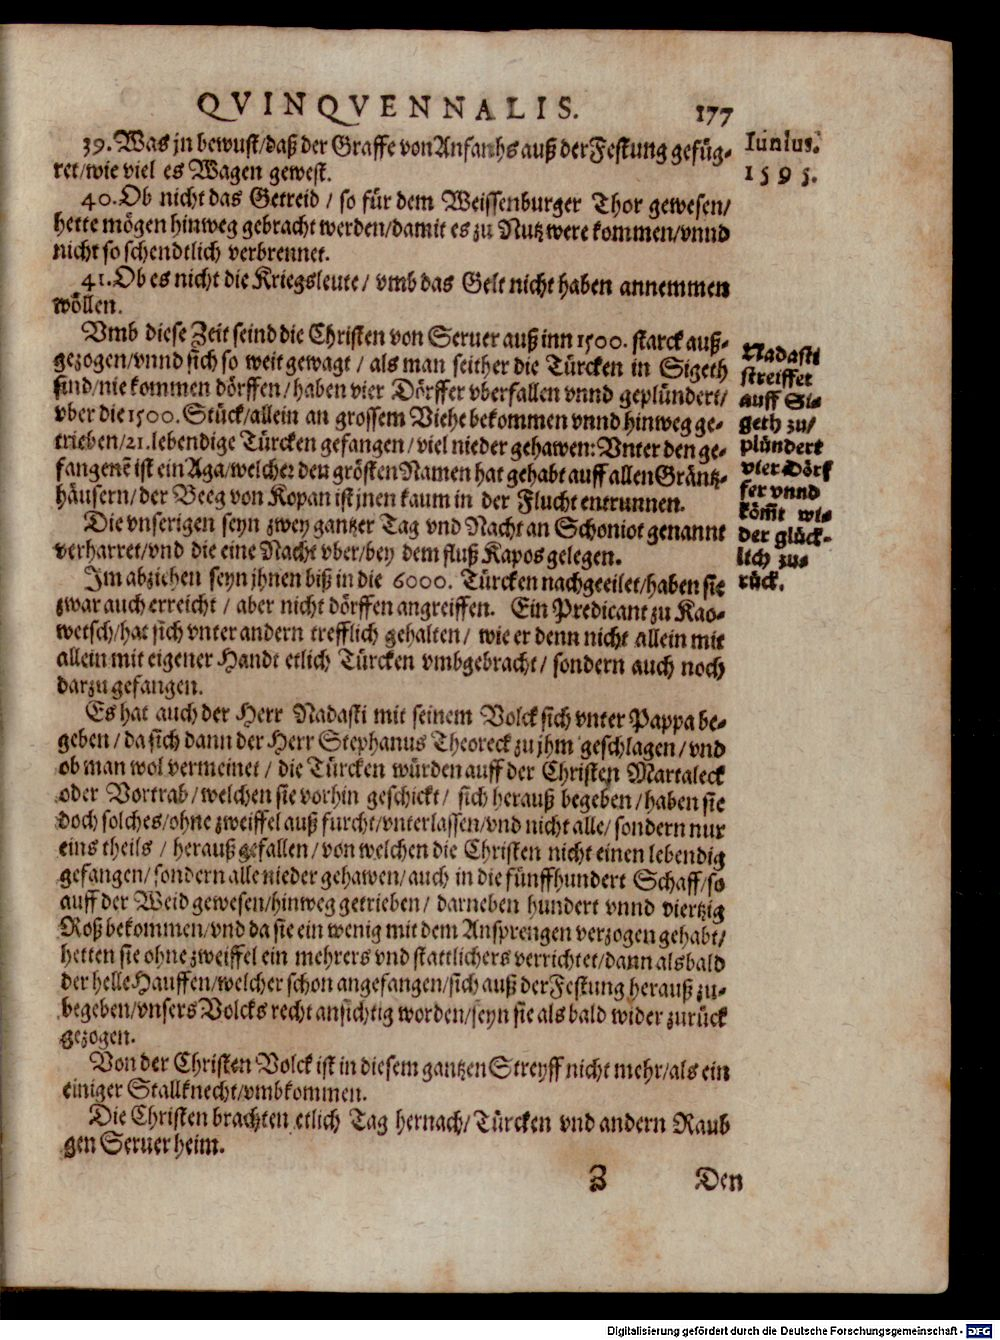 QVINQVENNALIS. 177
39. Was jn bewust/daß der Graffe von Anfanhs auß der Festung gefüg-
ret/wie viel es Wagen gewest.
40. Ob nicht das Getreid / so für dem Weissenburger Thor gewesen/
hette mögen hinweg gebracht werden/damit es zu Nutz were kommen/vnnd
nicht so schendtlich verbrennet.
41. Ob es nicht die Kriegsleute / vmb das Gelt nicht haben annemmen
wöllen.
Vmb diese Zeit seind die Christen von Seruer auß inn 1500. starck auß-
gezogen/vnnd sich so weit gewagt / als man seither die Türcken in Sigeth
sind/nie kommen dörffen/haben vier Dörffer vberfallen vnnd geplündert/
vber die 1500. Stück/allein an grossem Viehe bekommen vnnd hinweg ge-
trieben/21. lebendige Türcken gefangen/viel nieder gehawen: Vnter den ge-
fangenē ist ein Aga/welcher den grösten Namen hat gehabt auff allen Gräntz-
häusern/der Beeg von Kopan ist jnen kaum in der Flucht entrunnen.
Die vnserigen seyn zwey gantzer Tag vnd Nacht an Schoniot genannt
verharret/vnd die eine Nacht vber/bey dem fluß Kapos gelegen.
Im abziehen seyn jhnen biß in die 6000. Türcken nachgeeilet/haben sie
zwar auch erreicht / aber nicht dörffen angreiffen. Ein Predicant zu Kao-
wetsch/hat sich vnter andern trefflich gehalten/ wie er denn nicht allein mit
allein mit eigener Handt etlich Türcken vmbgebracht/ sondern auch noch
darzu gefangen.
Es hat auch der Herr Nadasti mit seinem Volck sich vnter Pappa be-
geben/da sich dann der Herr Stephanus Theoreck zu jhm geschlagen/vnd
ob man wol vermeinet / die Türcken würden auff der Christen Martaleck
oder Vortrab/welchen sie vorhin geschickt/ sich herauß begeben/haben sie
doch solches/ohne zweiffel auß furcht/vnterlassen/vnd nicht alle/ sondern nur
eins theils / herauß gefallen/von welchen die Christen nicht einen lebendig
gefangen/sondern alle nieder gehawen/auch in die fünffhundert Schaff/so
auff der Weid gewesen/hinweg getrieben/ darneben hundert vnnd viertzig
Roß bekommen/vnd da sie ein wenig mit dem Ansprengen verzogen gehabt/
hetten sie ohne zweiffel ein mehrers vnd stattlichers verrichtet/dann alsbald
der helle Hauffen/welcher schon angefangen/sich auß der Festung herauß zu-
begeben/vnsers Volcks recht ansichtig worden/seyn sie als bald wider zurück
gezogen.
Von der Christen Volck ist in diesem gantzen Streyff nicht mehr/als ein
einiger Stallknecht/vmbkommen.
Die Christen brachten etlich Tag hernach/Türcken vnd andern Raub
gen Seruer heim.
Z Den
Iunius.
1595.
Nadasti
streiffet
auff Si-
geth zu/
plündert
vier Dörf
fer vnnd
köm̃t wi-
der glück-
lich zu-
rück.
Digitalisierung gefördert durch die Deutsche Forschungsgemeinschaft - DFG